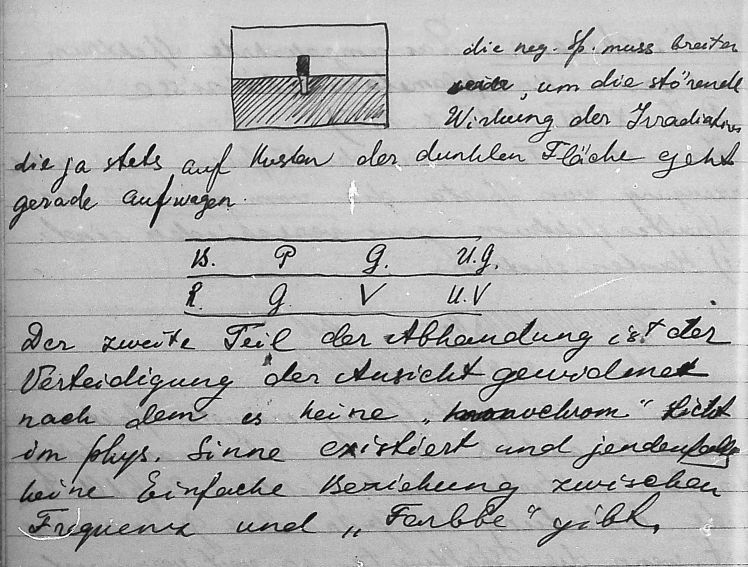 die neg. Sp. muss breiter
, um die störende
Wirkung der Irradiation
die ja stets auf Kosten der dunklen Fläche geht
gerade aufwagen.
B. P G. U.G.
R. G. V U.V
Der zweite Teil der Abhandung ist der
Verteidigung der Ansicht gewidmet
nach dem es keine „monochrom“ Licht
im phys. Sinne existiert und jendenfalls
keine Einfache Beziehung zwischen
Frequenz und „Farbbe“ gibt.